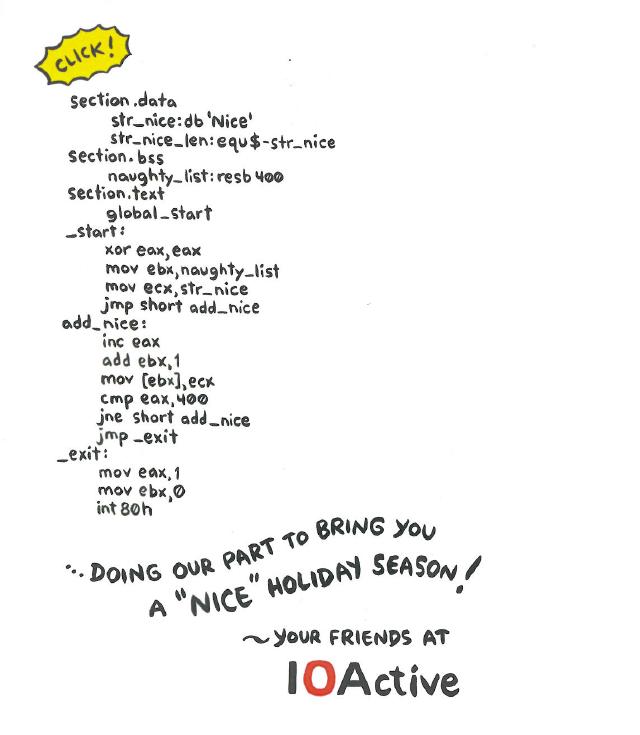 CLICK!
section.data
str_nice:db 'Nice'
str_nice_len:equ$-str_nice
section.bss
naughty_list:resb 400
section.text
global_start
_start:
xor eax,eax
mov ebx,naughty_list
mov ecx,str_nice
jmp short add_nice
add_nice:
inc eax
add ebx,1
mov [ebx],ecx
cmp eax,400
jne short add_nice
jmp _exit
_exit:
mov eax,1
mov ebx,0
int 80h
...DOING OUR PART TO BRING YOU
A "NICE" HOLIDAY SEASON!
~YOUR FRIENDS AT
IOActive